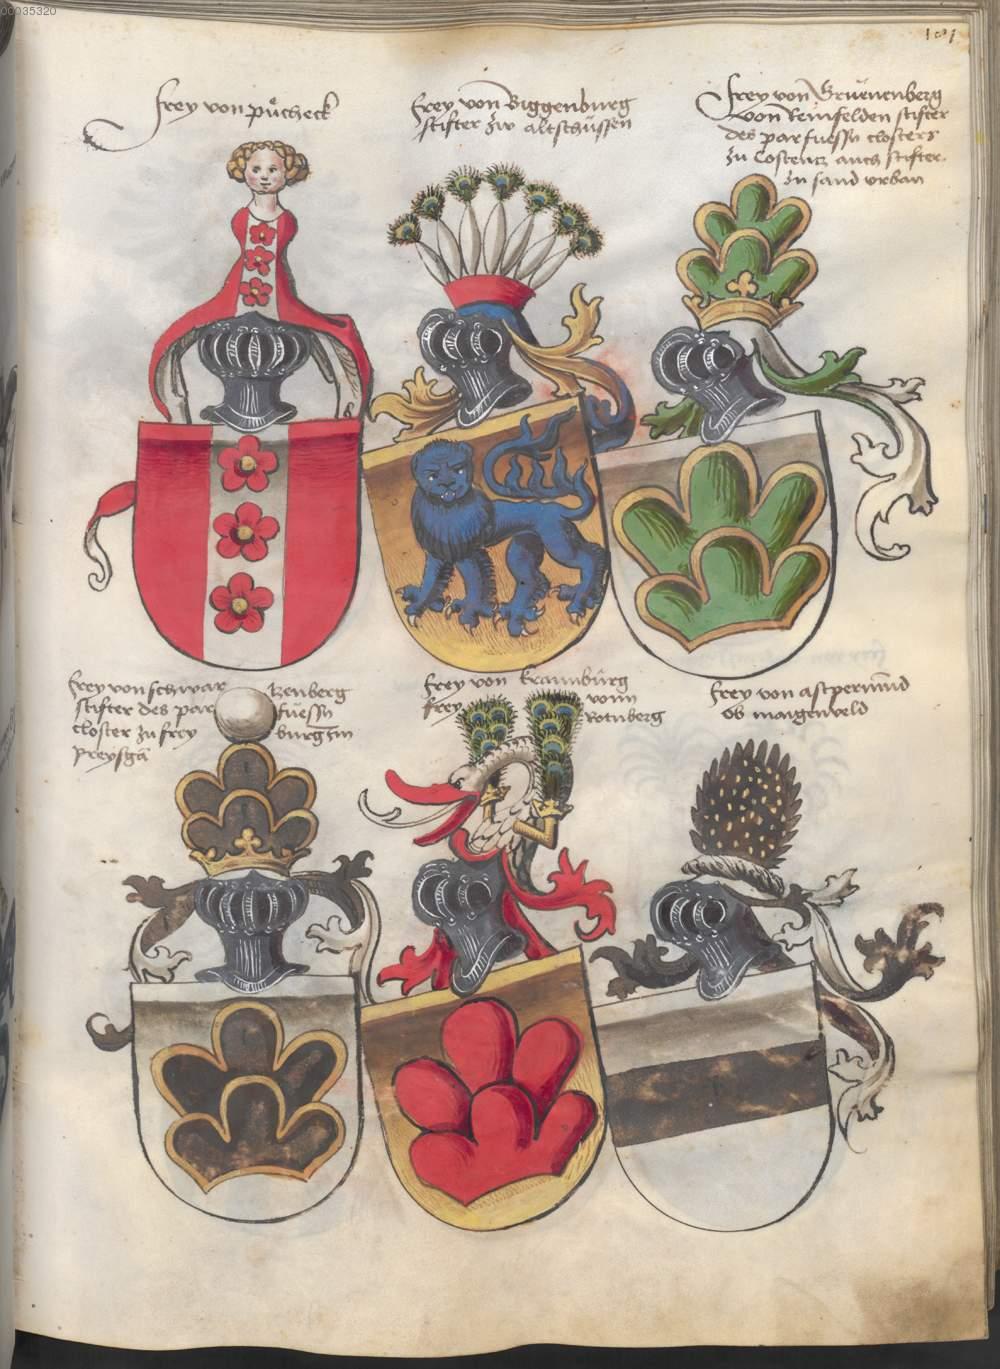 00035320
181
frey von pücheck
frey von Biggenburg
stifter zw altschussen
frey von Gruenenberg
von Reinfelden stifter
des parfuessn closters
zu Costentz auch stifter
zu sand vrban
frey von schwartzenberg
stifter des parfuessn
closter zu freyburg im
Preysgä
frey von Krannburg
frey vonn Rotnberg
frey von astpermund
ob maigenveld